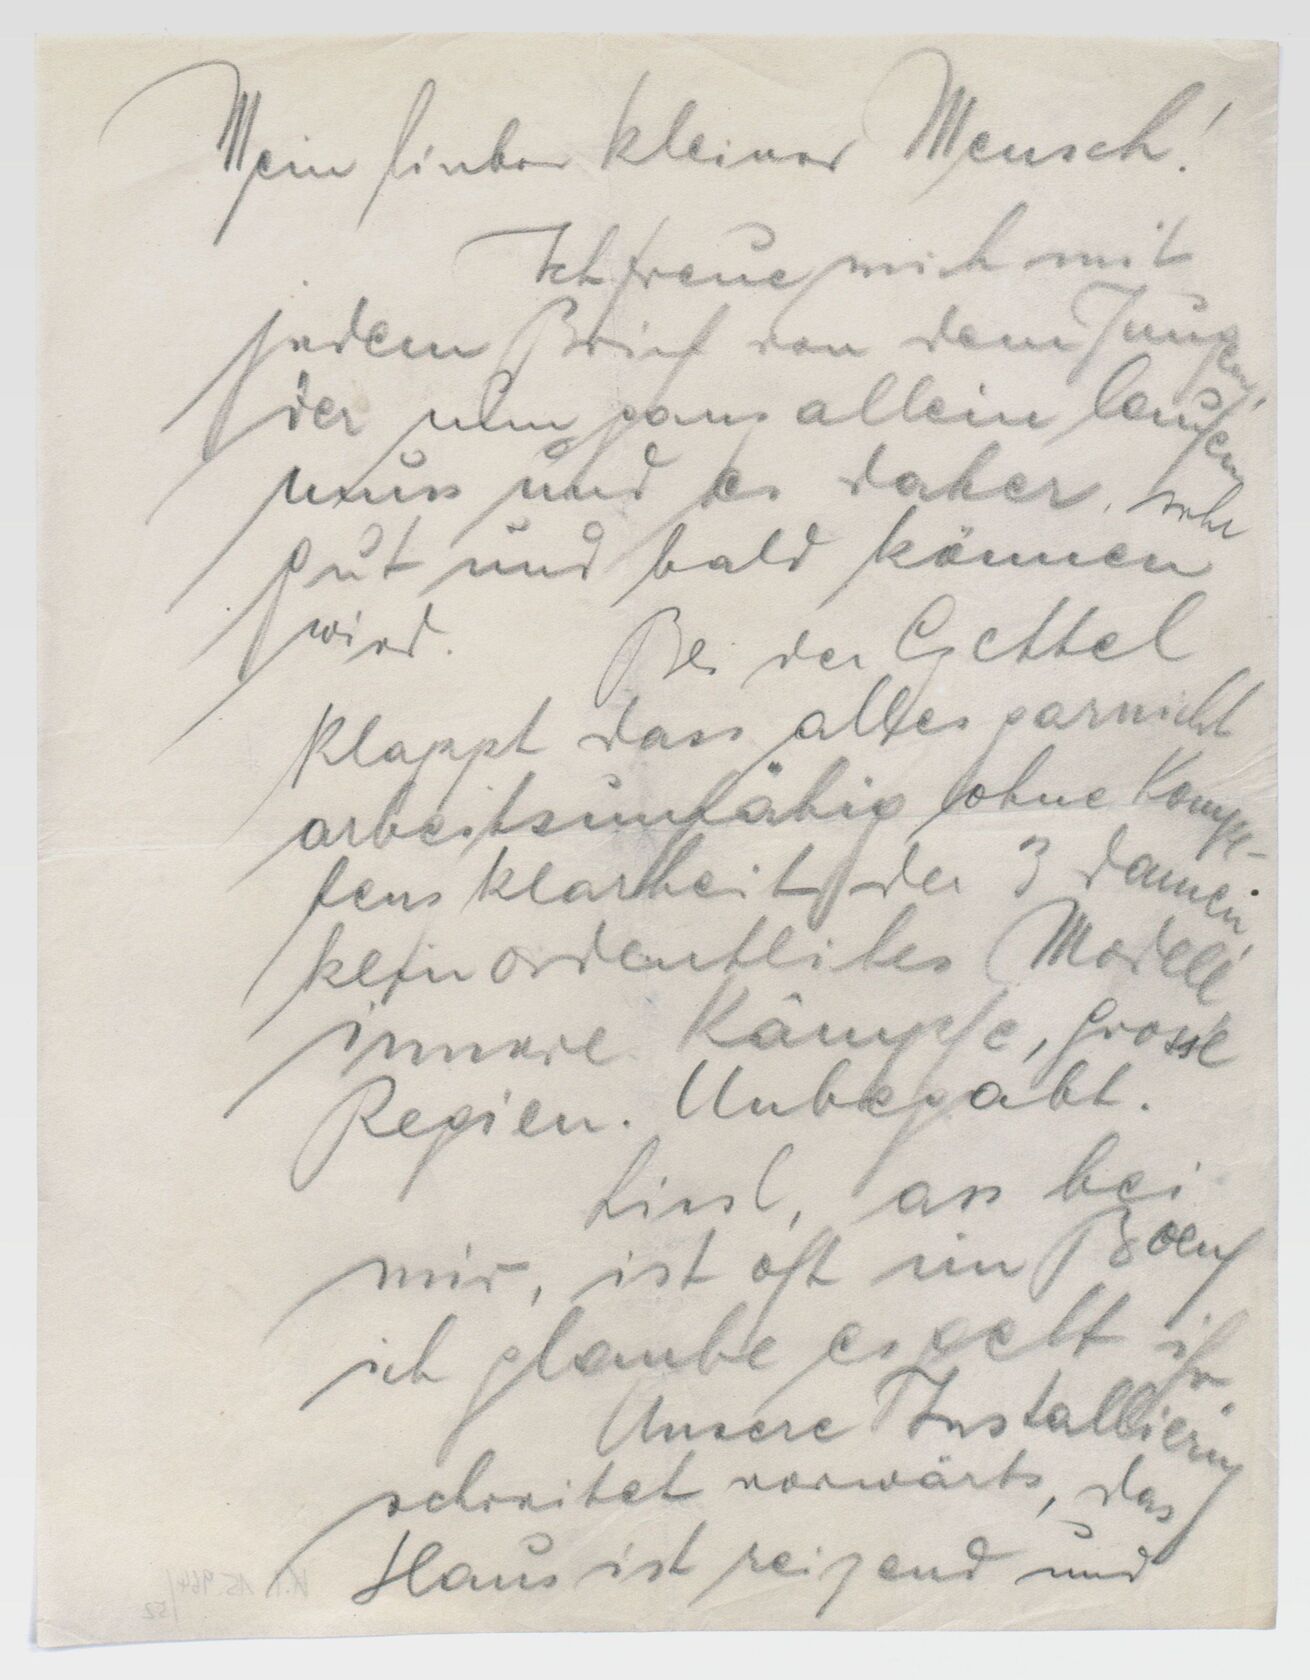 Mein lieber kleiner Mensch!
Ich freue mich mit
jedem Brief von dem Jungen,
der nun ganz allein laufen
muss und es daher, sehr
gut und bald können
wird. Bei der Gettel
klappt dass alles garnicht
arbeitsunfähig ohne Kompe-
tens klarheit der 3 Damen,
kein ordentliches Modell
innere Kämpfe, grosse
Regien. Unbegabt.
Liesl, ass bei
mir, ist oft im Boeuf
ich glaube es geht ihr
Unsere Installierung
schreitet vorwärts, das
Haus ist reizend und